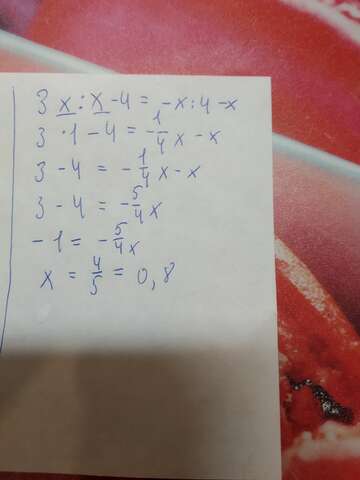 3 x : x - 4 = - x : 4 - x
3 · 1 - 4 = - 1/4 x - x
3 - 4 = - 1/4 x - x
3 - 4 = - 5/4 x
- 1 = - 5/4 x
x = 4/5 = 0,8